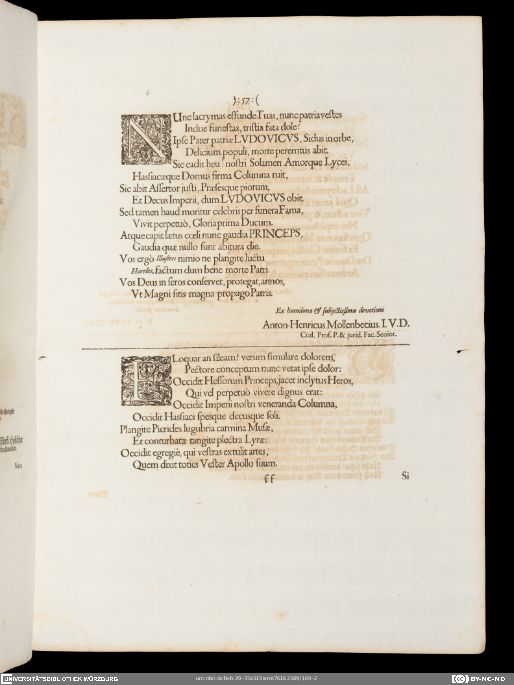 ):57:(
NUnc lacrymas effunde Tuas, nunc patria vestes
Indue funestas, tristia fata dole!
Ipse Pater patriæ LVDOVICVS, Sidus in orbe,
Delicium populi, morte peremtus abit.
Sic cadit heu! nostri Solamen Amorque Lycei,
Hassiacæque Domus firma Columna ruit,
Sic abit Assertor justi, Præsesque piorum,
Et Decus Imperii, dum LUDOVICUS obit.
Sed tamen haud moritur celebris per funera Fama,
Vivit perpetuò, Gloria prima Ducum.
Atque capit lætus cœli nunc gaudia PRINCEPS,
Gaudia quæ nullo sunt abitura die.
Vos ergò Illustres nimio ne plangite luctu
Heroles, factum dum bene morte Patri.
Vos Deus in seros conservet, protegat, annos,
Vt Magni sitis magna propago Patris.
Ex humilima & subjectissima devotione
Anton-Henricus Mollenbecius. I.V.D.
Cod. Prof. P. & jurid. Fac. Senior.
ELoquar an sileam? verum simulare dolorem,
Pectore conceptum nunc vetat ipse dolor:
Occidit Hessorum Princeps, jacet inclytus Heros,
Qui vel perpetuò vivere dignus erat:
Occidit Imperii nostri veneranda Columna,
Occidit Hassiaci spesque decusque soli.
Plangite Pierides lugubria carmina Musæ,
Et conturbata tangite plectra Lyræ:
Occidit egregiè, qui vestras extulit artes,
Quem dixit toties Vester Apollo suum.
ff
Si
UNIVERSITÄTSBIBLIOTHEK WÜRZBURG
BY-NC-ND